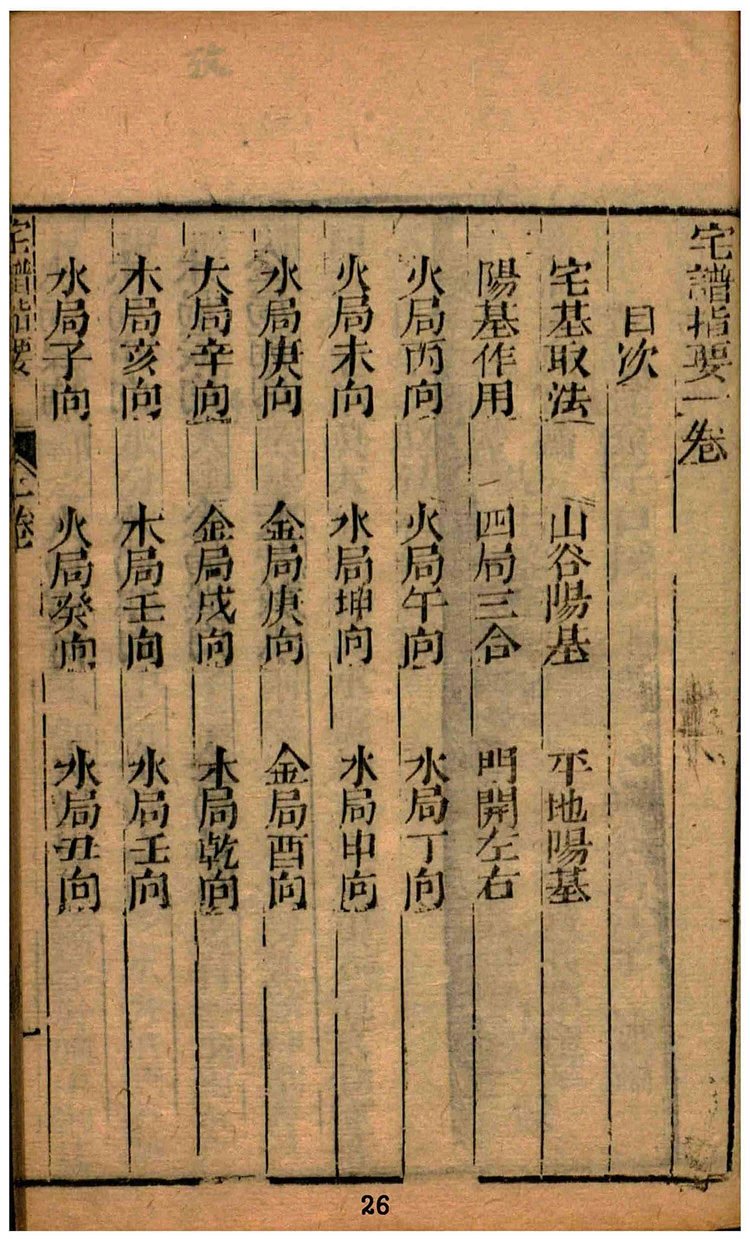 宅譜指要一卷
目次
宅基取法 山谷陽基 平地陽基
陽基作用 四局三合 門開左右
火局丙向 火局午向 水局丁向
火局未向 水局坤向 水局申向
水局庚向 金局庚向 金局酉向
大局辛向 金局戌向 木局乾向
木局亥向 木局壬向 水局壬向
水局子向 火局癸向 水局丑向
宅譜指要 卷
26